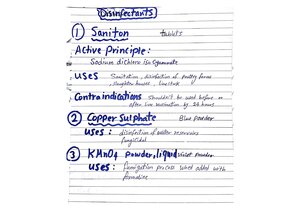 Disinfectants
① Saniton tablets
Active Principle:
Sodium dichloro Iso Cyanurate
uses Sanitation, disinfection of poultry farms
slaughter houses, livestock
Contraindications Shouldn't be used before or
after live vaccination by 24 hours
② Copper Sulphate Blue powder
uses: disinfection of water reservoirs
fungicidal
③ KMnO4 powder, liquid violet powder
uses: fumigation process when added with
formaline